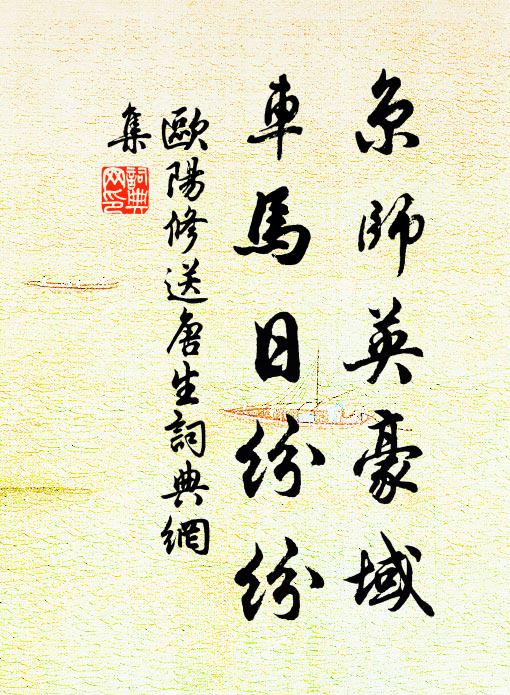 京師英豪域
車馬日紛紛
歐陽修送唐生詞典網
集
詞典網印